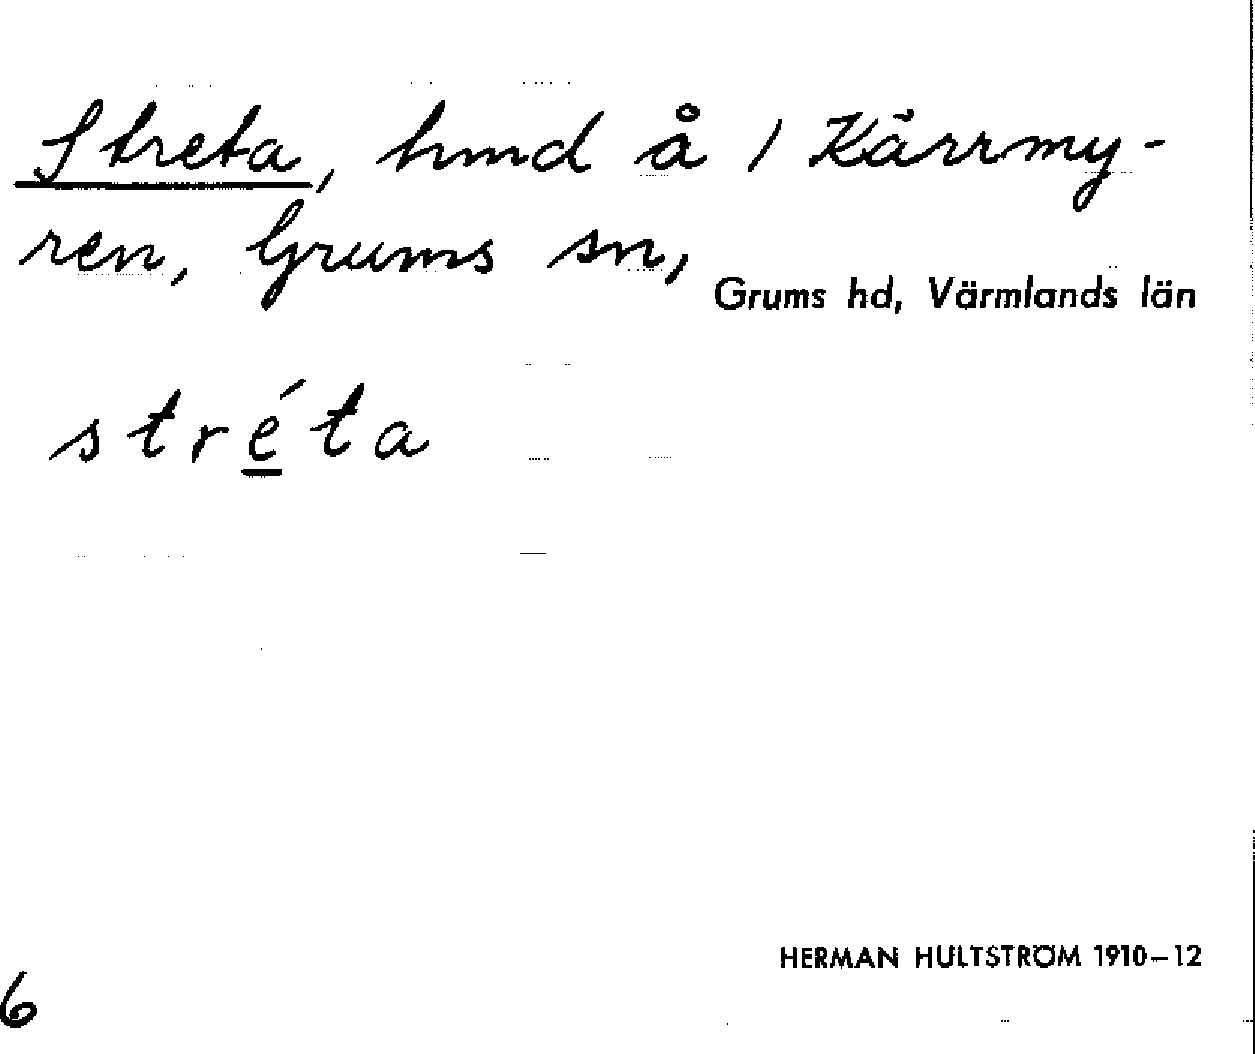 Streta, hmd å 1 Kärrmy-
ren, Grums sn,
Grums hd, Värmlands län
stréta
HERMAN HULTSTRÖM 1910–12
6